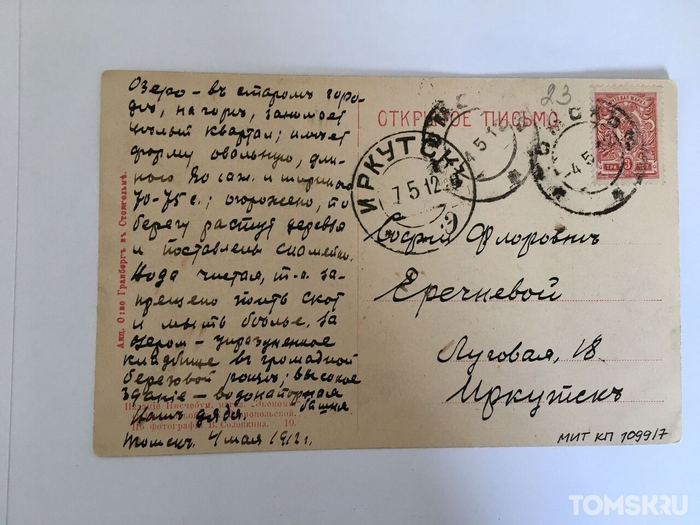 Озеро – въ старомъ горо-
дѣ, на горѣ, занимаетъ
цѣлый кварталъ; имѣетъ
форму овальную, дли-
ною саж. и шириною
70-75 с.; огорожено, по
берегу растутъ деревья
и поставлены скамейки.
Вода чистая, т.к. за-
прещено поить скотъ
и мыть бѣлье. За
озеромъ – упраздненное
кладбище въ громадной
березовой рощѣ; высокое
зданіе – водонапорная
башня
Вашъ дядя.
Томскъ. 4 мая 1912 г.
Акц. О-во Гранбергъ въ Стокгольмѣ.
Изданіе Писчебум. магаз.
По фотографіи В. Соловкина. 19.
ОТКРЫТОЕ ПИСЬМО
23
ИРКУТСКЪ
7 5 12
4 5 12
-4 5
ТРИ 3 КОП
Софіи Флоровнѣ
Еречневой
Луговая, 18
Иркутскъ
МИТ КП 1099/7
TOMSK.RU